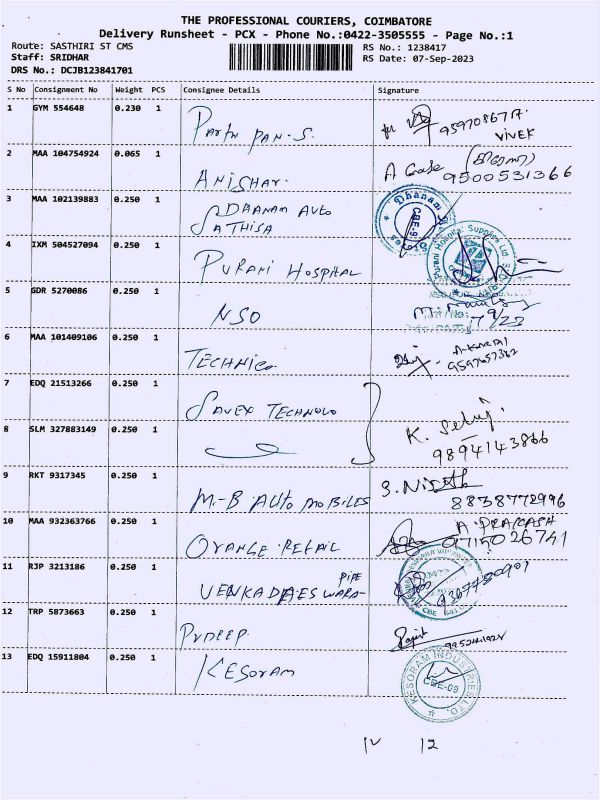 THE PROFESSIONAL COURIERS, COIMBATORE
Delivery Runsheet - PCX - Phone No.:0422-3505555 - Page No.:1
Route: SASTHIRI ST CMS
RS No.: 1238417
Staff: SRIDHAR
RS Date: 07-Sep-2023
DRS No.: DCJB123841701
S No Consignment No Weight PCS Consignee Details Signature
1 GYM 554648 0.230 1
VIVEK
2 MAA 104754924 0.065 1 ANISHAR.
9500531366
3 MAA 102139883 0.250 1 DHANAM AUTO
SATHISA
Dhanam
CBE.9
4 IXM 504527094 0.250 1 PURANI HOSPITAL
Purani Hospital Supplies
5 GDR 5270086 0.250 1 NSO
7/9/23
6 MAA 101409106 0.250 1 TECHNICO
7 EDQ 21513266 0.250 1 SAVEX TECHNOLO
8 SLM 327883149 0.250 1 K. Selvaj
9894143866
9 RKT 9317345 0.250 1 M-B AUTO MOBILES
8838772996
10 MAA 932363766 0.250 1 ORANGE RETAIL A. PRAKASH
11 RJP 3213186 0.250 1 VENKADAESWARA PIPE
12 TRP 5873663 0.250 1 PRDEEP
13 EDQ 15911804 0.250 1 KESORAM
KESORAM INDUSTRIES LTD.
CBE-09
12